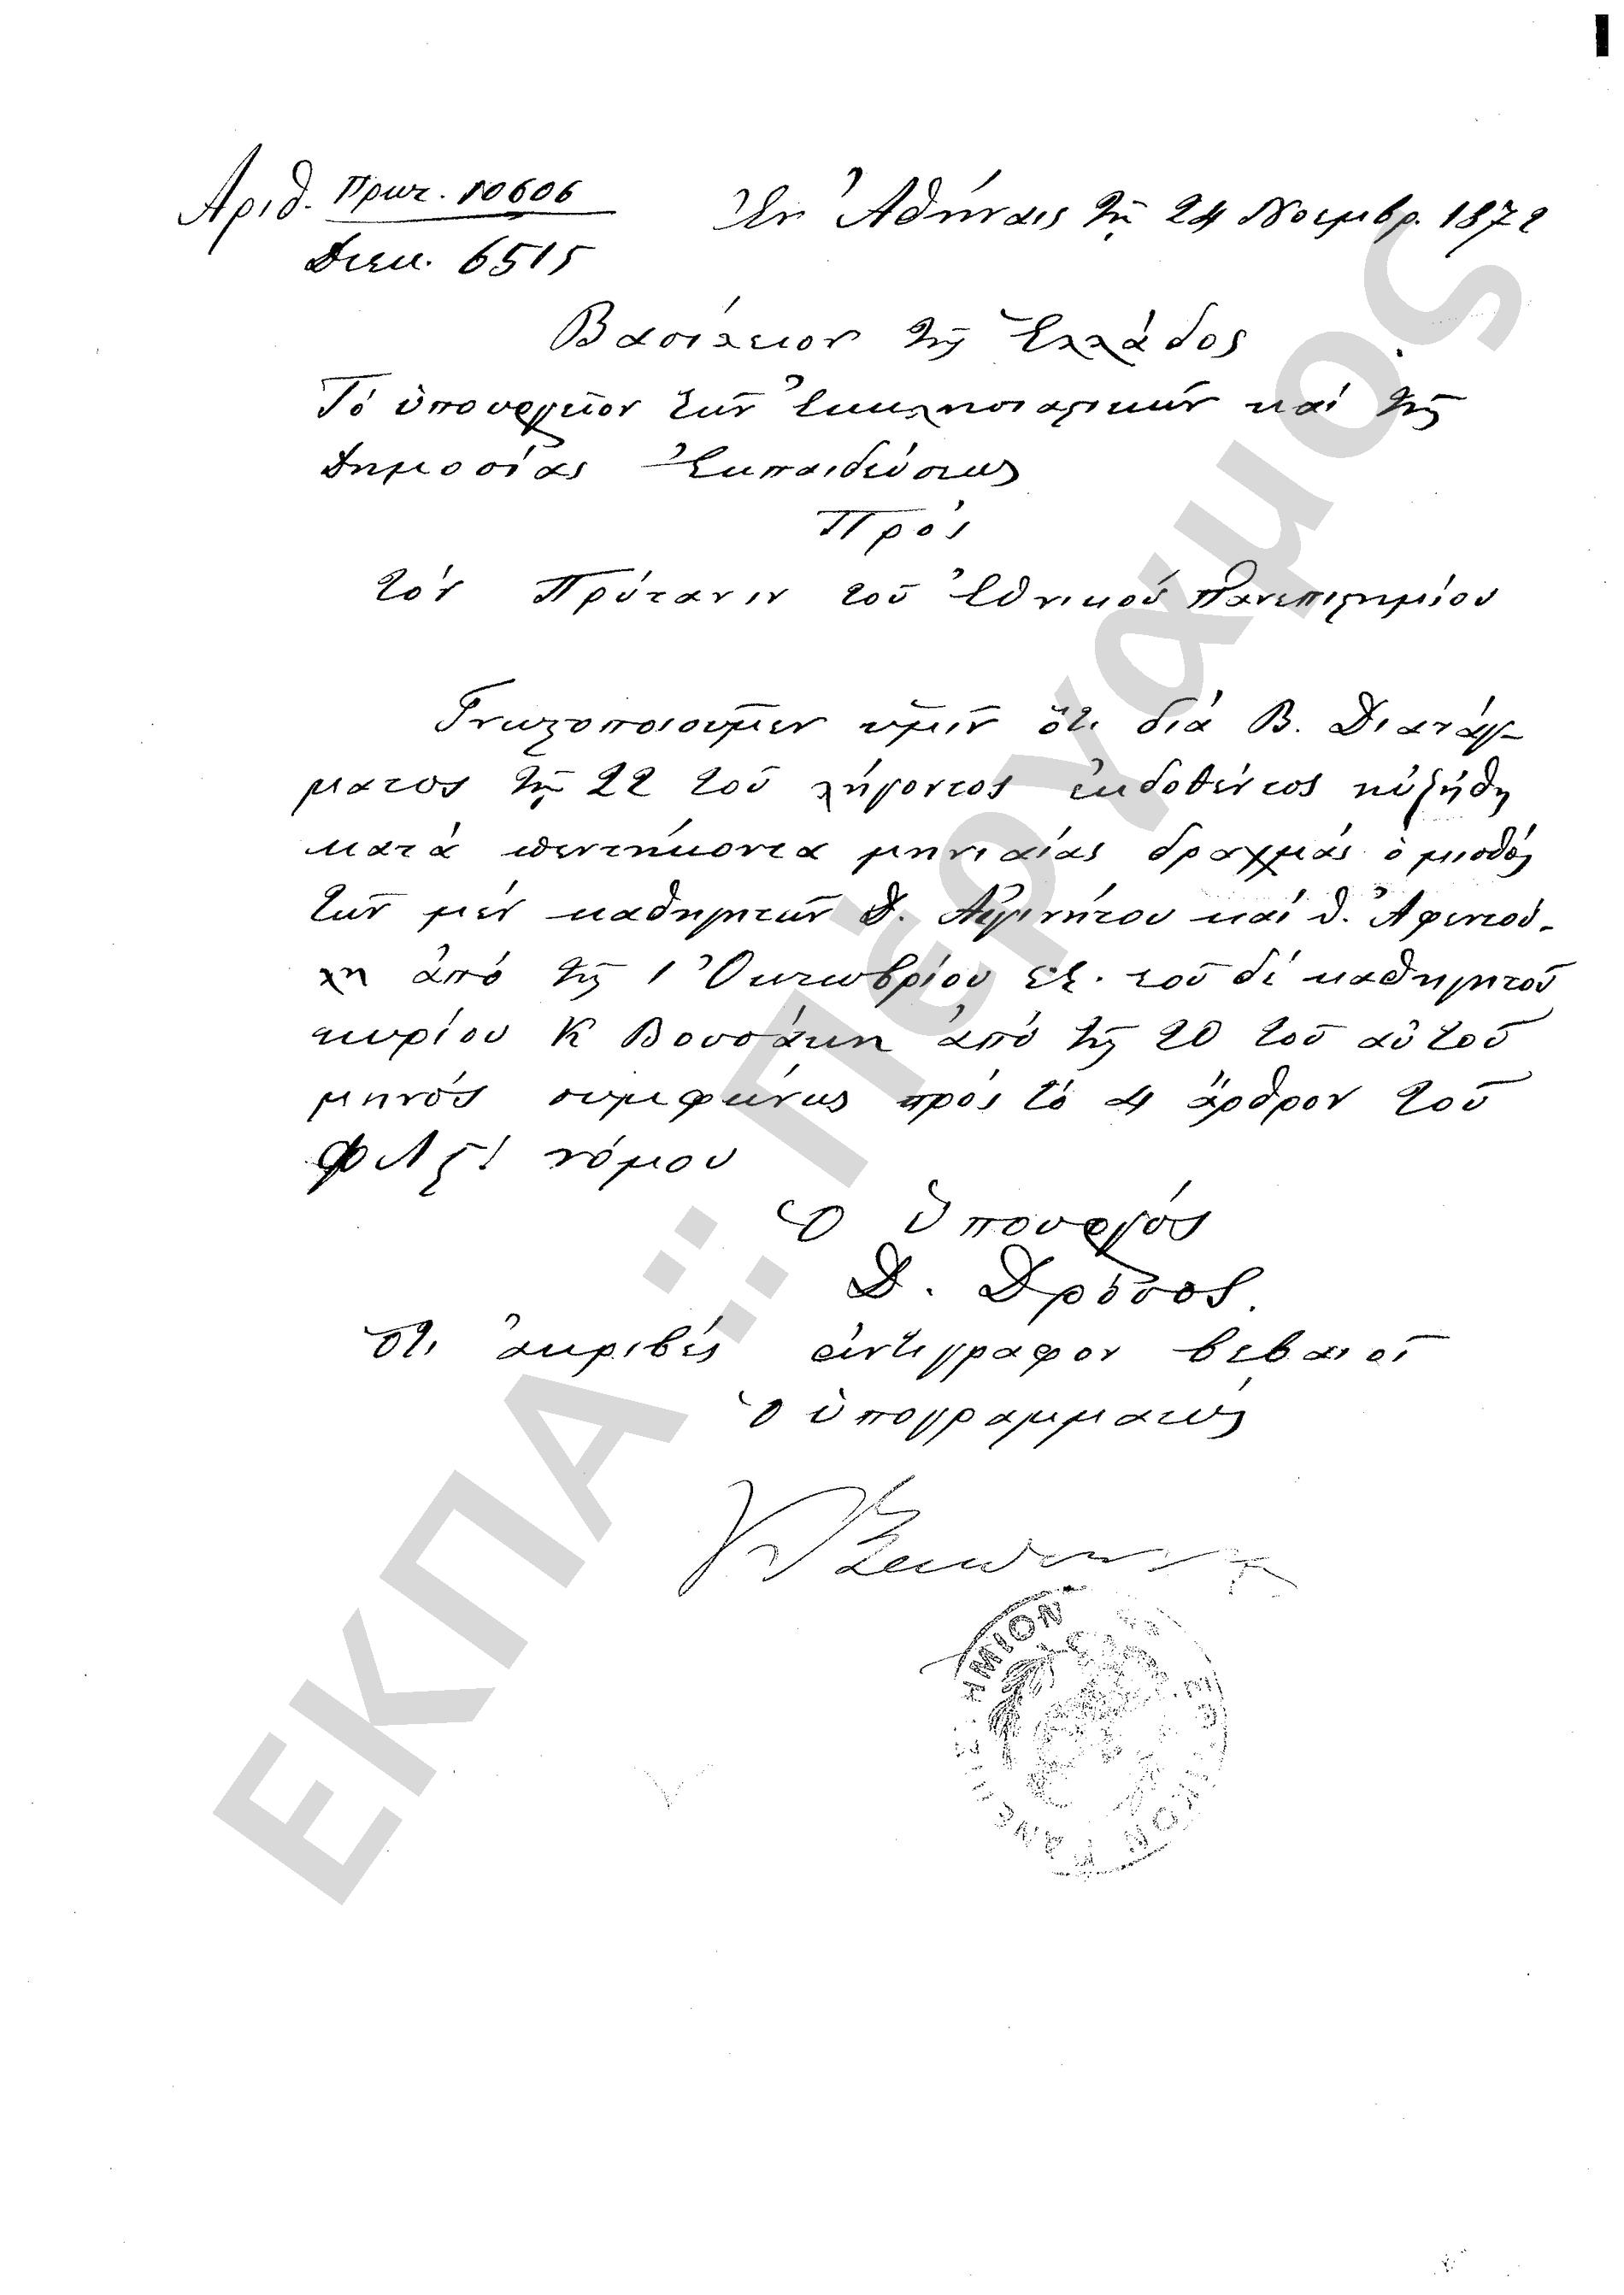 Ἀριθ. Πρωτ. 10606
Διεκ. 6515
Ἐν Ἀθήναις τῇ 24 Νοεμβρ. 1872
Βασίλειον τῆς Ἑλλάδος
Τὸ ὑπουργεῖον τῶν Ἐκκλησιαστικῶν καὶ τῆς
Δημοσίας Ἐκπαιδεύσεως
Πρὸς
τὸν Πρύτανιν τοῦ Ἐθνικοῦ Πανεπιστημίου
Γνωστοποιοῦμεν ὑμῖν ὅτι διὰ Β. Διατάγ-
ματος τῇ 22 τοῦ λήγοντος ἐκδοθέντος ηὐξήθη
κατὰ πεντήκοντα μηνιαίας δραχμάς ὁ μισθός
τῶν μὲν καθηγητῶν Δ. Αἰγινήτου καὶ Θ. Ἀφεντού-
λη ἀπό τῆς 1 Ὀκτωβρίου ἐ.ἔ. τοῦ δὲ καθηγητοῦ
κυρίου Κ Βουσάκη ἀπό τῆς 20 τοῦ αὐτοῦ
μηνός συμφώνως πρὸς τὸ 4 ἄρθρον τοῦ
ΦΛϚ! νόμου
Ὁ ὑπουργός
Δ. Δρόσος.
Ὅτι ἀκριβές ἀντίγραφον βεβαιοῖ
Ὁ ὑπογραμματεύς
ΕΚΠΑ:: Πέργαμος